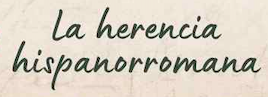 La herencia
hispanorromana